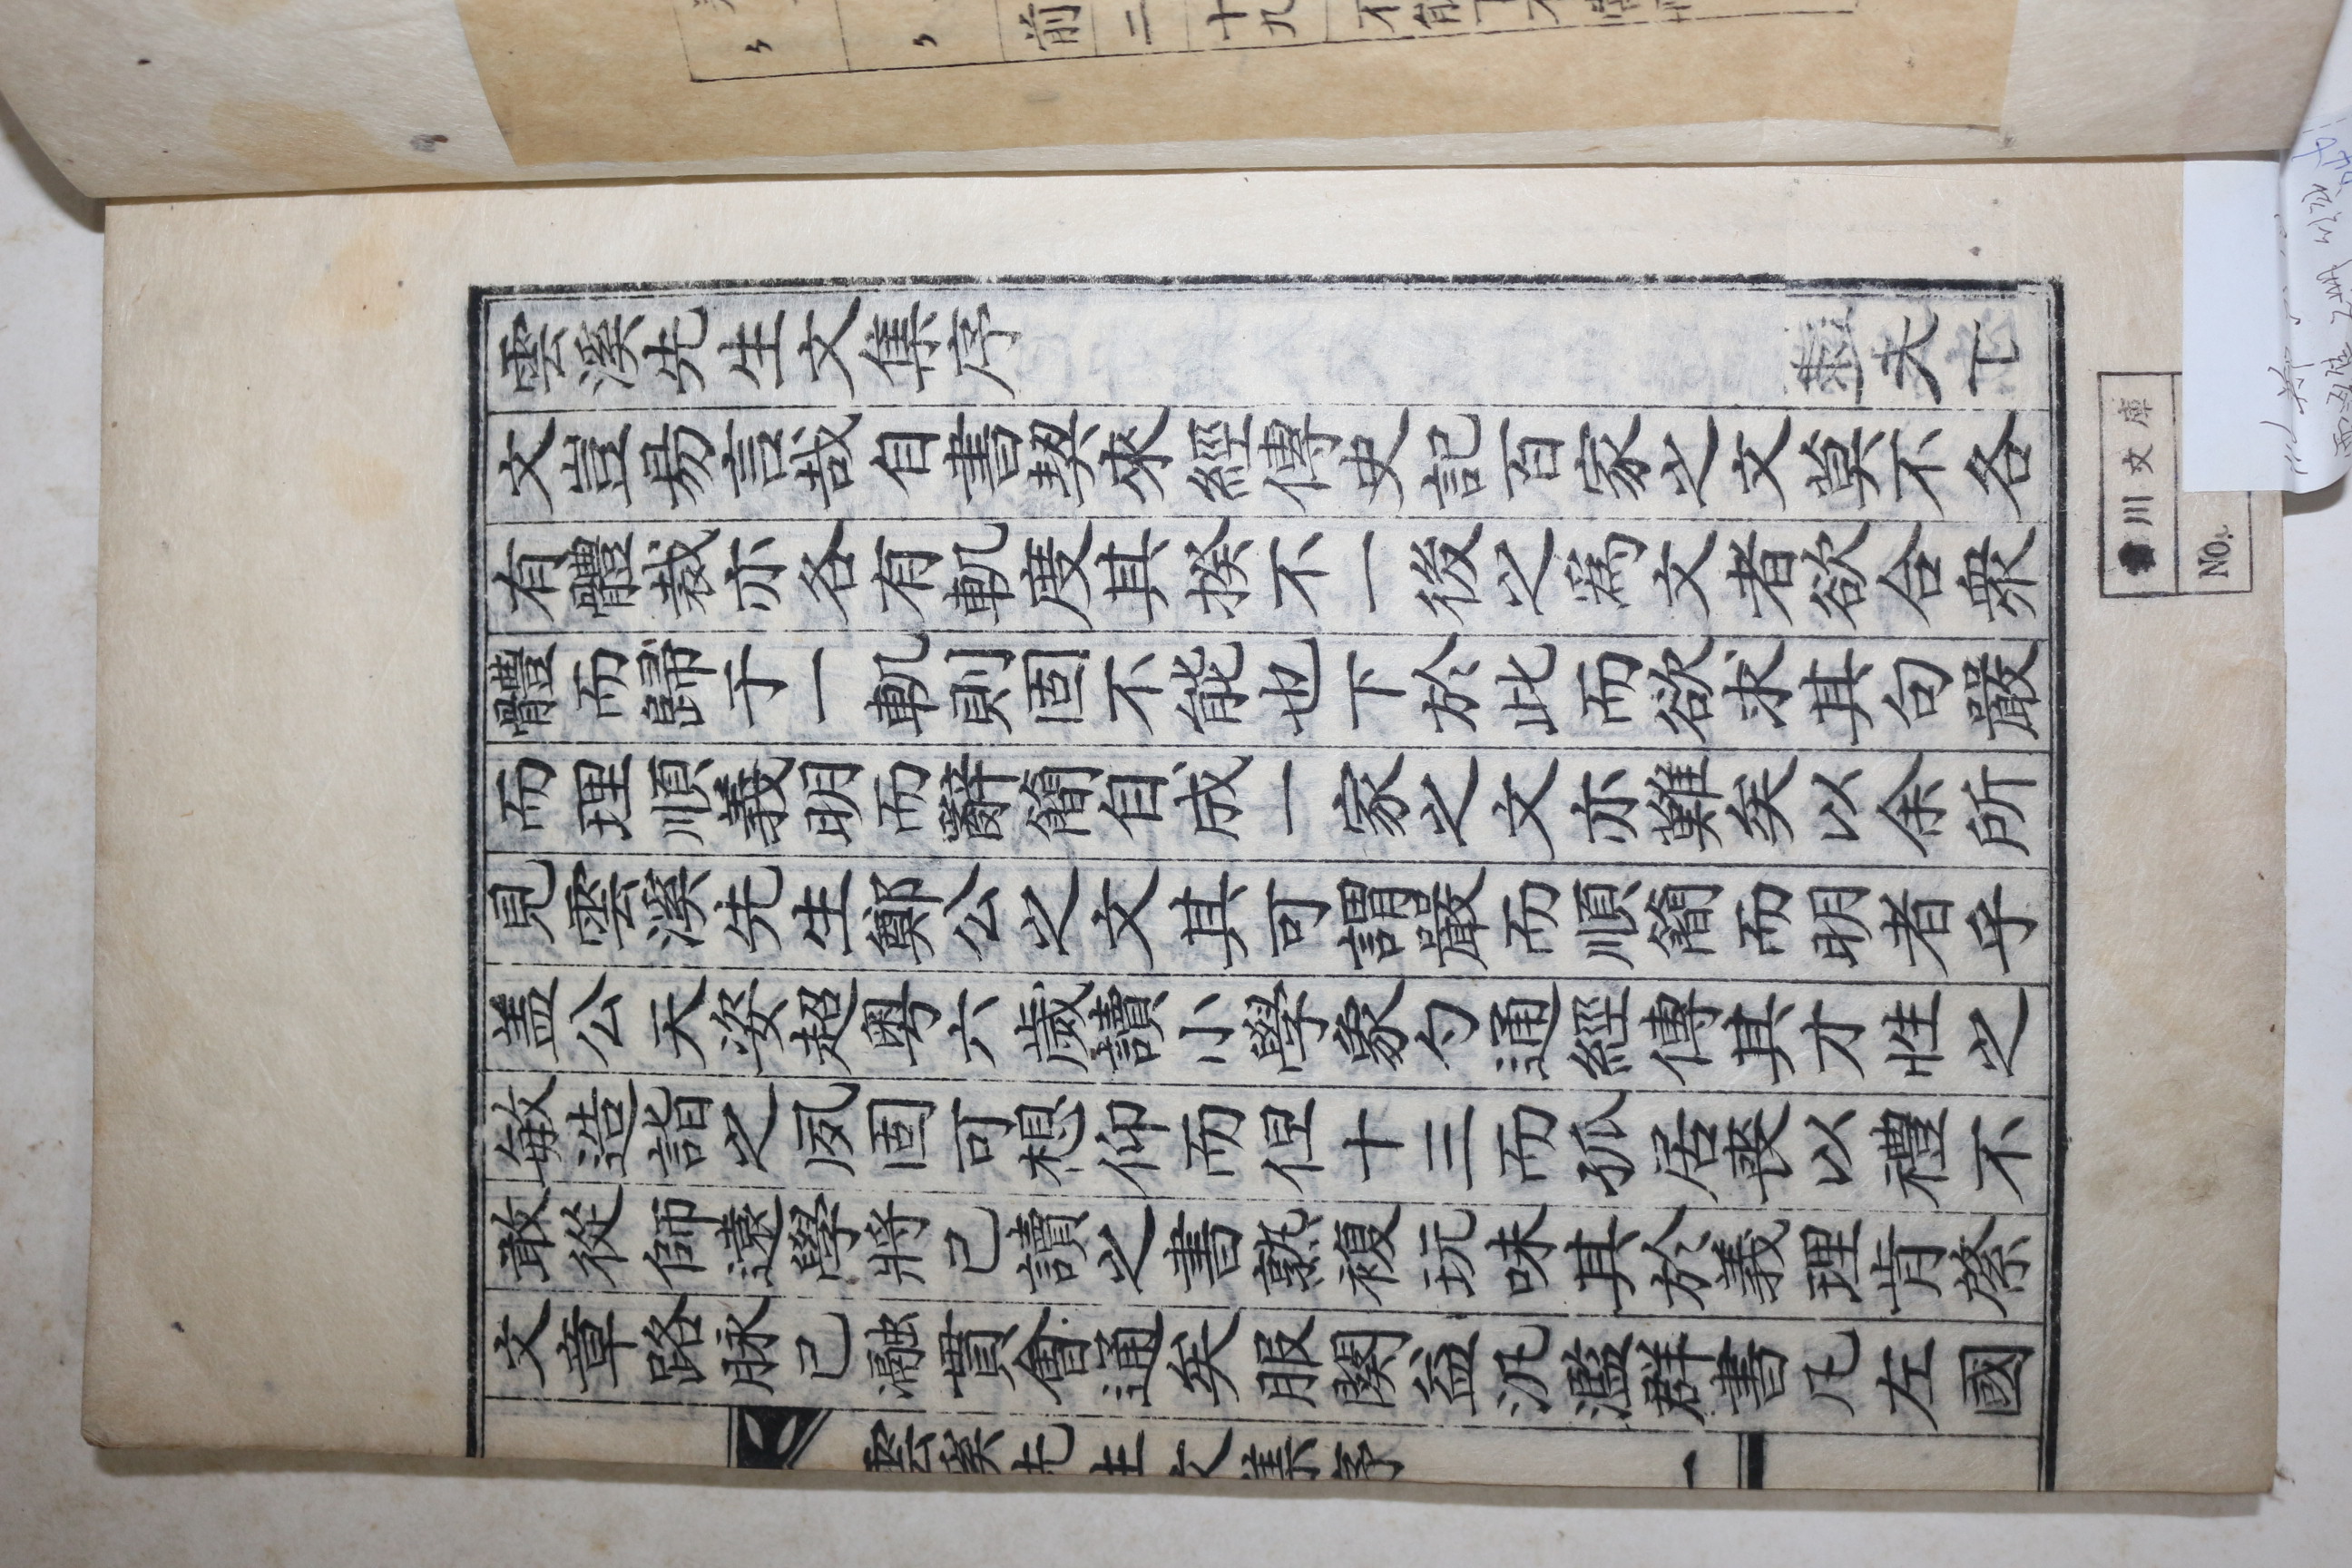 雲溪先生文集序
文豈易言哉自書契來經傳史記百家之文莫不各
有體裁亦各有軏度其揆不一後之爲文者欲合衆
體而歸于一軏則固不能也下於此而欲求其句嚴
而理順義明而辭簡自成一家之文亦難矣以余所
見雲溪先生鄭公之文其可謂嚴而順簡而明者乎
盖公天姿超粤六歲讀小學象勺通經傳其才性之
敏造詣之夙固可想仰而但十三而孤居喪以禮不
敢從師遠學將己讀之書熟複玩味其於義理肯綮
文章路脉已瀜貫會通矣服闋益汎濫群書凡左國
雲溪先生文集序
一
川文庫
NO.
前二十九不能下